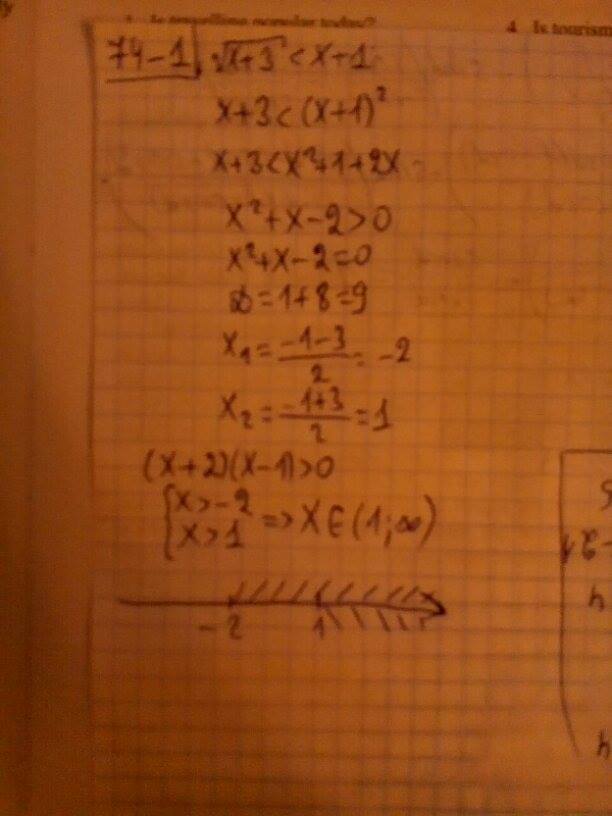 4. Is tourism
74-1. √x+3 < x+1
x+3<(x+1)²
x+3<x²+1+2x
x²+x-2>0
x²+x-2=0
D=1+8=9
x₁=(-1-3)/2=-2
x₂=(-1+3)/2=1
(x+2)(x-1)>0
{x>-2
x>1 => x∈(1;∞)
-2 1